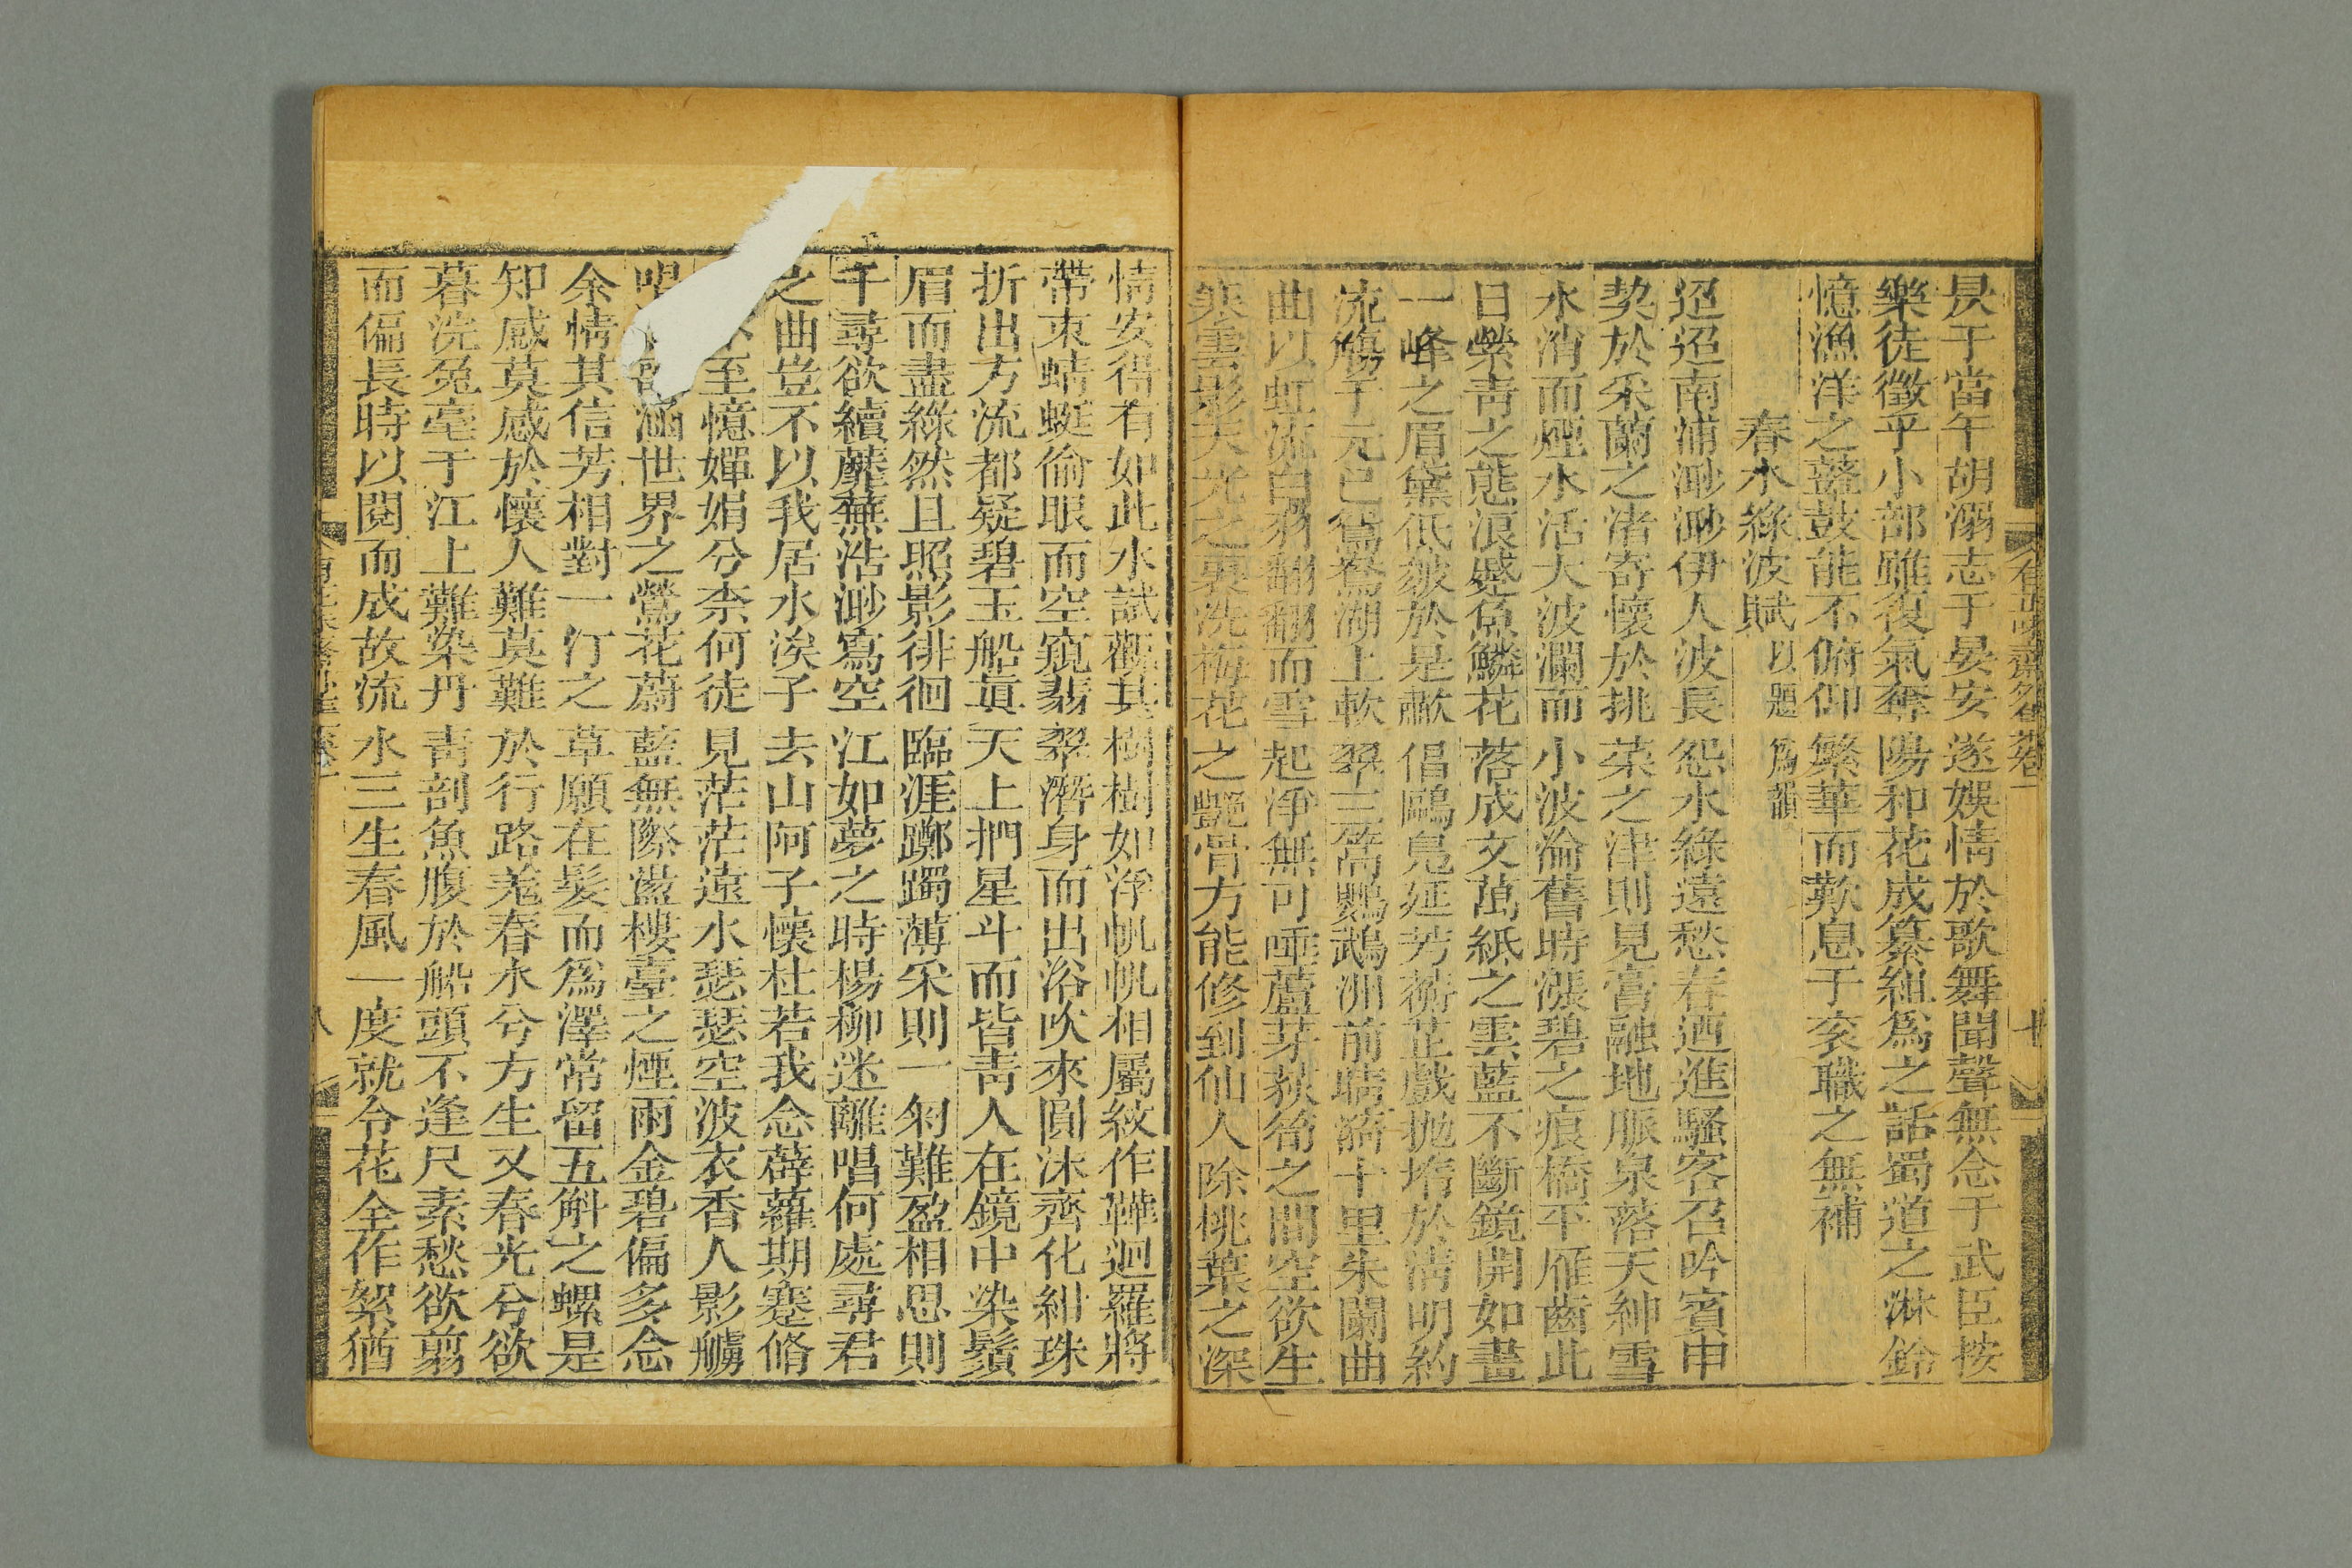 昃于當午胡溺志于晏安遂娛情於歌舞聞聲無念于武臣按
樂徒徵乎小部雖復氣奪陽和花成纂組爲之話蜀道之淋鈴
憶漁洋之鼙鼓能不俯仰繁華而歎息于衮職之無補
春水綠波賦以題爲韻
迢迢南浦渺渺伊人波長怨水綠遠愁春迺進騷客召吟賓申
契於采蘭之渚寄懷於挑菜之津則見膏融地脈泉落天紳雪
水消而煙水活大波瀾而小波淪舊時漲碧之痕橋平雁齒此
日縈靑之態浪蹙魚鱗花落成文萬紙之雲藍不斷鏡開如畫
一峰之眉黛低皴於是歗倡鷗鳧延芳蘅芷戲拋堶於淸明約
流觴于元巳鴛鴦湖上軟翠三篙鸚鵡洲前晴漪十里朱闌曲
曲以虹流白羽翻翻而雪起淨無可唾蘆芽荻筍之間空欲生
寒雲影天光之裏洗梅花之艷骨方能修到仙人除桃葉之深
情安得有如此水試觀其樹樹如浮帆帆相屬紋作鞾迴羅將
帶束蜻蜓偷眼而空窺翡翠潛身而出浴吹來圓沫齊化紺珠
折出方流都疑碧玉船眞天上捫星斗而皆靑人在鏡中染鬚
眉而盡綠然且照影徘徊臨涯躑躅薄采則一匊難盈相思則
千尋欲續蘼蕪浩渺寫空江如夢之時楊柳迷離唱何處尋君
之曲豈不以我居水涘子去山阿子懷杜若我念薜蘿期蹇脩
至憶嬋娟兮柰何徒見茫茫遠水瑟瑟空波衣香人影艣
唱涵世界之鶯花蔚藍無際盪樓臺之煙雨金碧偏多念
余情其信芳相對一汀之草願在髮而爲澤常留五斛之螺是
知感莫感於懷人難莫難於行路羌春水兮方生又春光兮欲
暮洗兔毫于江上難染丹靑剖魚腹於船頭不逢尺素愁欲剪
而偏長時以閱而成故流水三生春風一度就令花全作絮猶